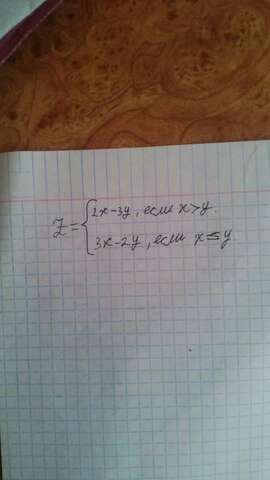 Z = { 2x-3y, если x>y.
3x-2y, если x≤y